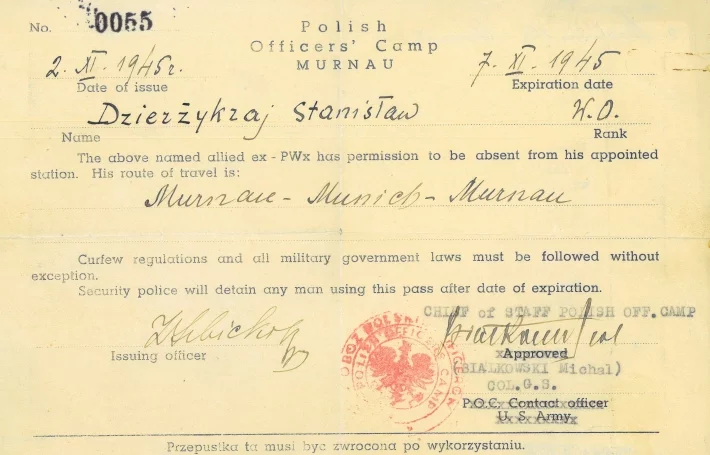 No. 0055
Polish
Officers' Camp
MURNAU
2. XI. 1945r.
7. XI. 1945
Date of issue
Expiration date
Dzierżykraj Stanisław
W.O.
Name
Rank
The above named allied ex - PWx has permission to be absent from his appointed
station. His route of travel is:
Murnau - Munich - Murnau
Curfew regulations and all military government laws must be followed without
exception.
Security police will detain any man using this pass after date of expiration.
CHIEF of STAFF POLISH OFF. CAMP
Issuing officer
Approved
(BIALKOWSKI Michal)
COL.G.S.
P.O.C. Contact officer
U. S. Army
POLISH OFFICERS CAMP
Przepustka ta musi być zwrocona po wykorzystaniu.